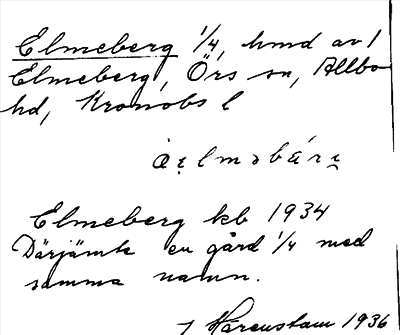 Elmeberg 1/4, hmd av 1
Elmeberg, Örs sn, Allbo
hd, Kronobs l
Elmeberg kb 1934
Därjämte en gård 1/4 med
samma namn.
J Härenstam 1936